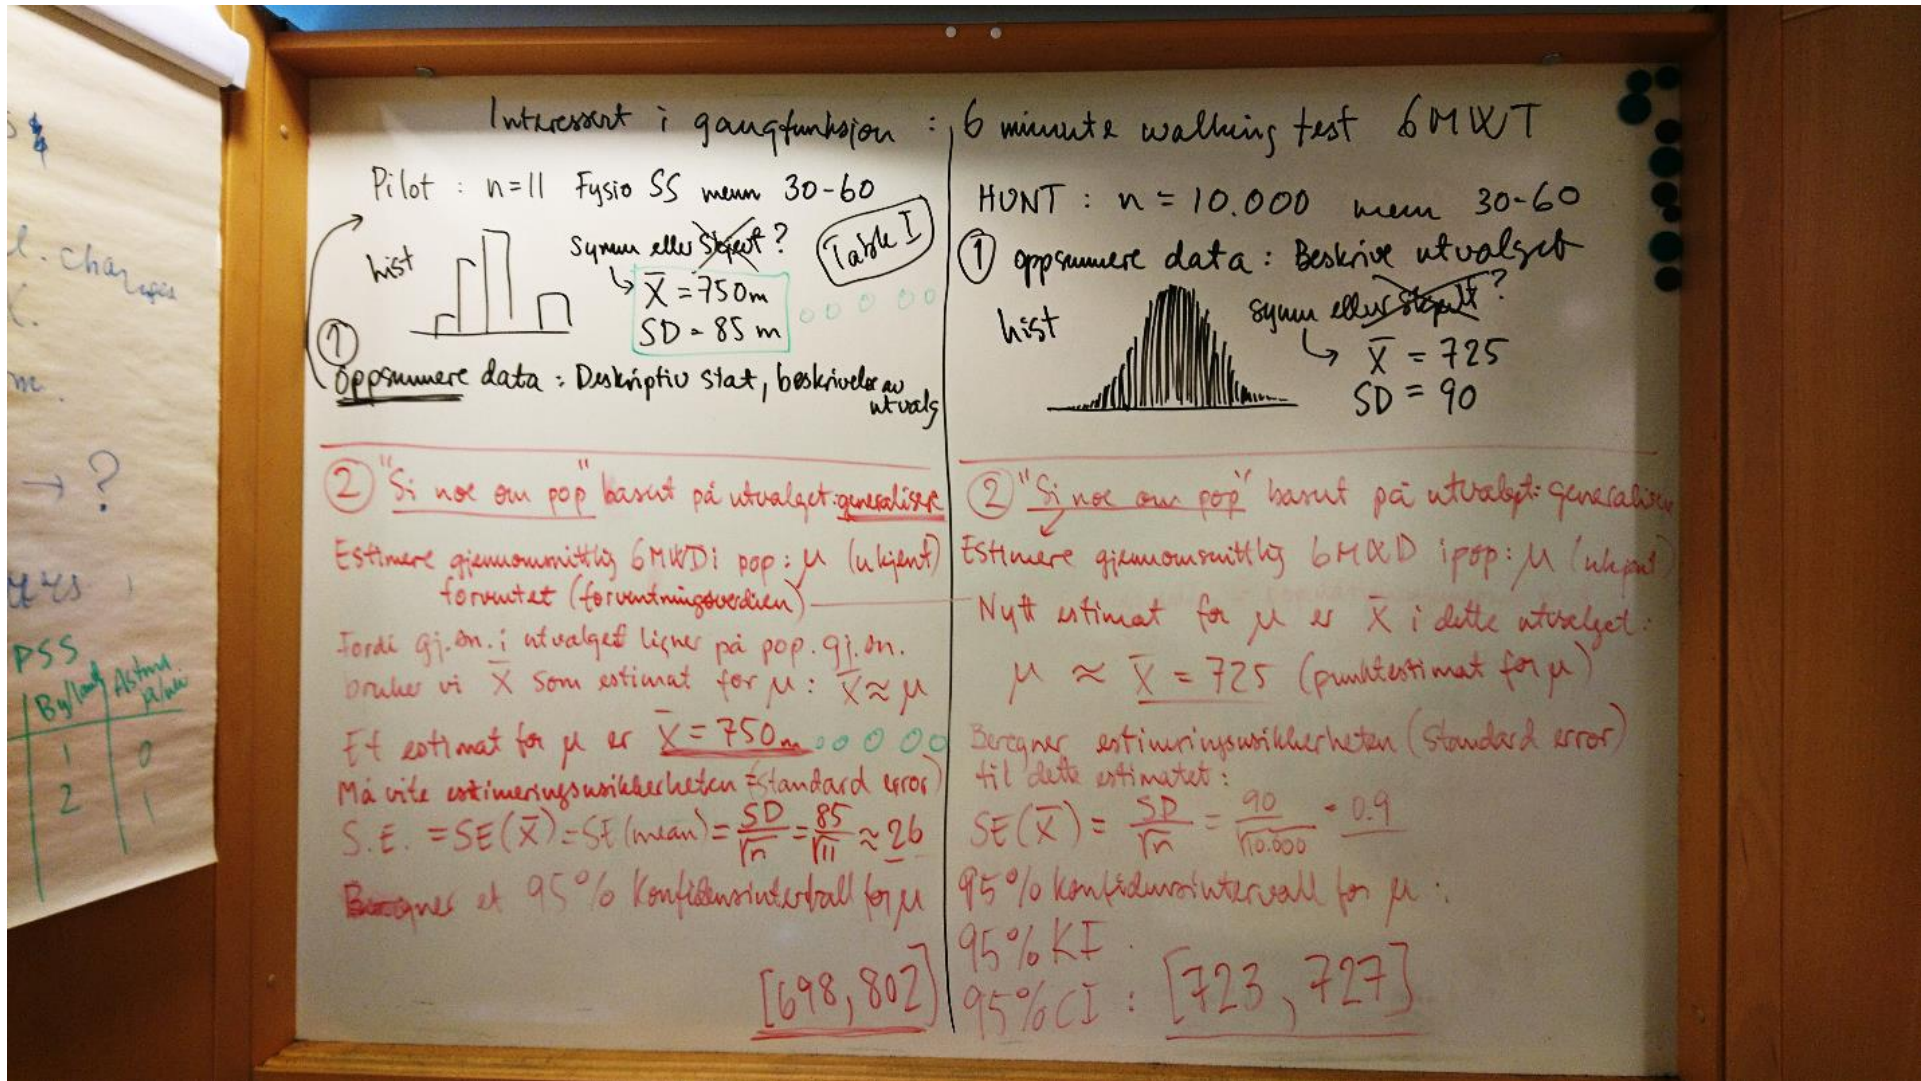 Interessert i gangfunksjon : 6 minute walking test 6MWT
Pilot : n=11 Fysio SS menn 30-60
hist
symm eller skjevt ?
Table I
X̄ = 750m
SD = 85 m
①
Oppsummere data : Deskriptiv stat, beskrivelse av
utvalg
② "Si noe om pop" basert på utvalget: generalisere
Estimere gjennomsnittlig 6MWD i pop : μ (ukjent)
forventet (forventningsverdien)
Fordi gj.sn. i utvalget ligner på pop. gj.sn.
bruker vi X̄ som estimat for μ : X̄ ≈ μ
Et estimat for μ er X̄ = 750m
Må vite estimeringsusikkerheten = (standard error)
S.E. = SE(X̄) = SE(mean) = SD/√n = 85/√11 ≈ 26
Beregner et 95% konfidensintervall for μ
[698, 802]
HUNT : n = 10.000 menn 30-60
① oppsummere data : Beskrive utvalget
hist
symm eller skjevt ?
X̄ = 725
SD = 90
② "Si noe om pop" basert på utvalget: generalisere
Estimere gjennomsnittlig 6MWD i pop : μ (ukjent)
Nytt estimat for μ er X̄ i dette utvalget :
μ ≈ X̄ = 725 (punktestimat for μ)
Beregner estimeringsusikkerheten (standard error)
til dette estimatet :
SE(X̄) = SD/√n = 90/√10.000 = 0.9
95% konfidensintervall for μ :
95% KI
95% CI : [723, 727]
l. changes
→ ?
PSS
By/land
1 0
2 1